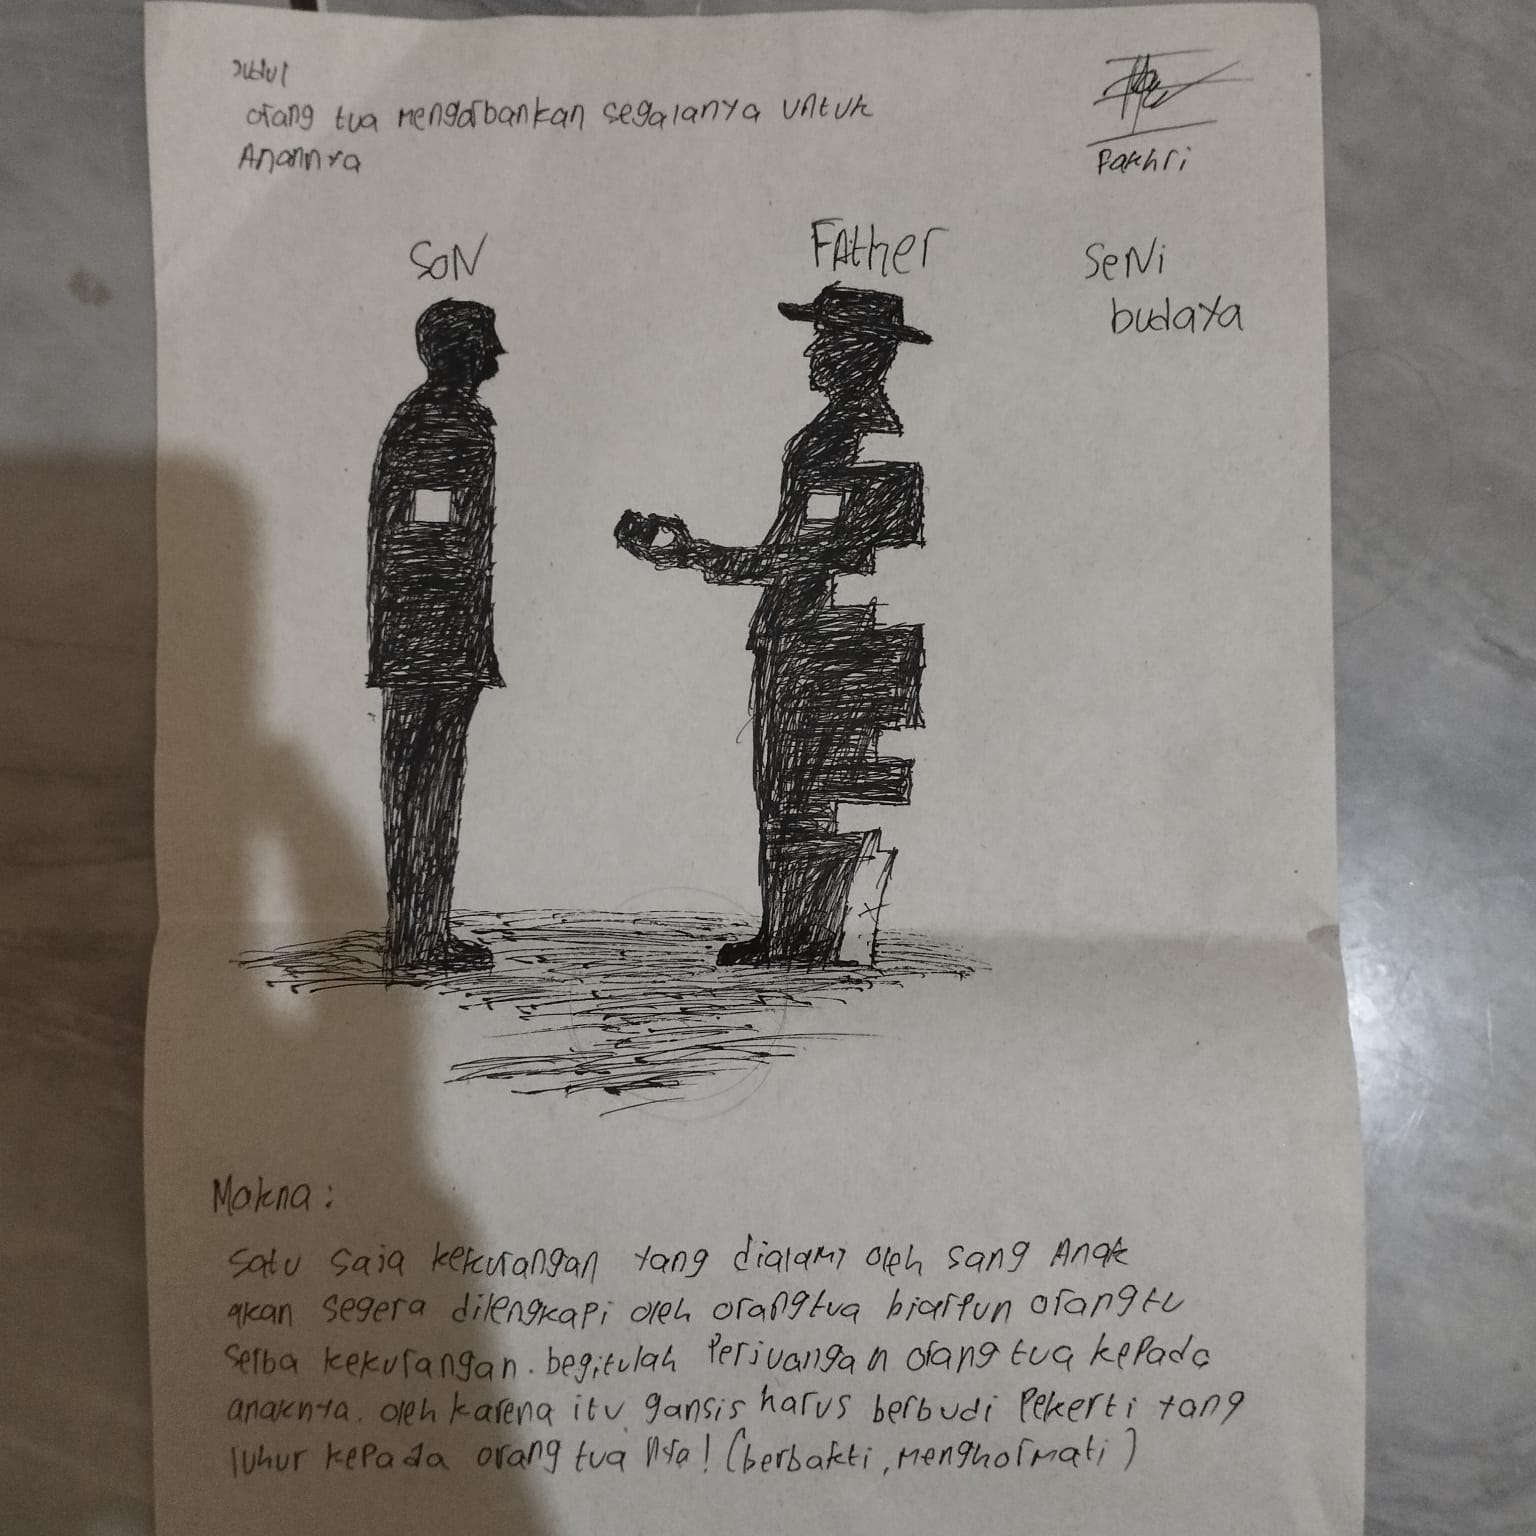 Judul
orang tua mengorbankan segalanya untuk
Anaknya
Fakhri
SON
FAther
Seni
budaya
Makna :
Satu saja kekurangan yang dialami oleh sang Anak
akan segera dilengkapi oleh orangtua biarpun orangtu
serba kekurangan. begitulah Perjuangan orang tua kepada
anaknya. oleh karena itu gansis harus berbudi Pekerti yang
luhur kepada orang tua nya! (berbakti, menghormati)